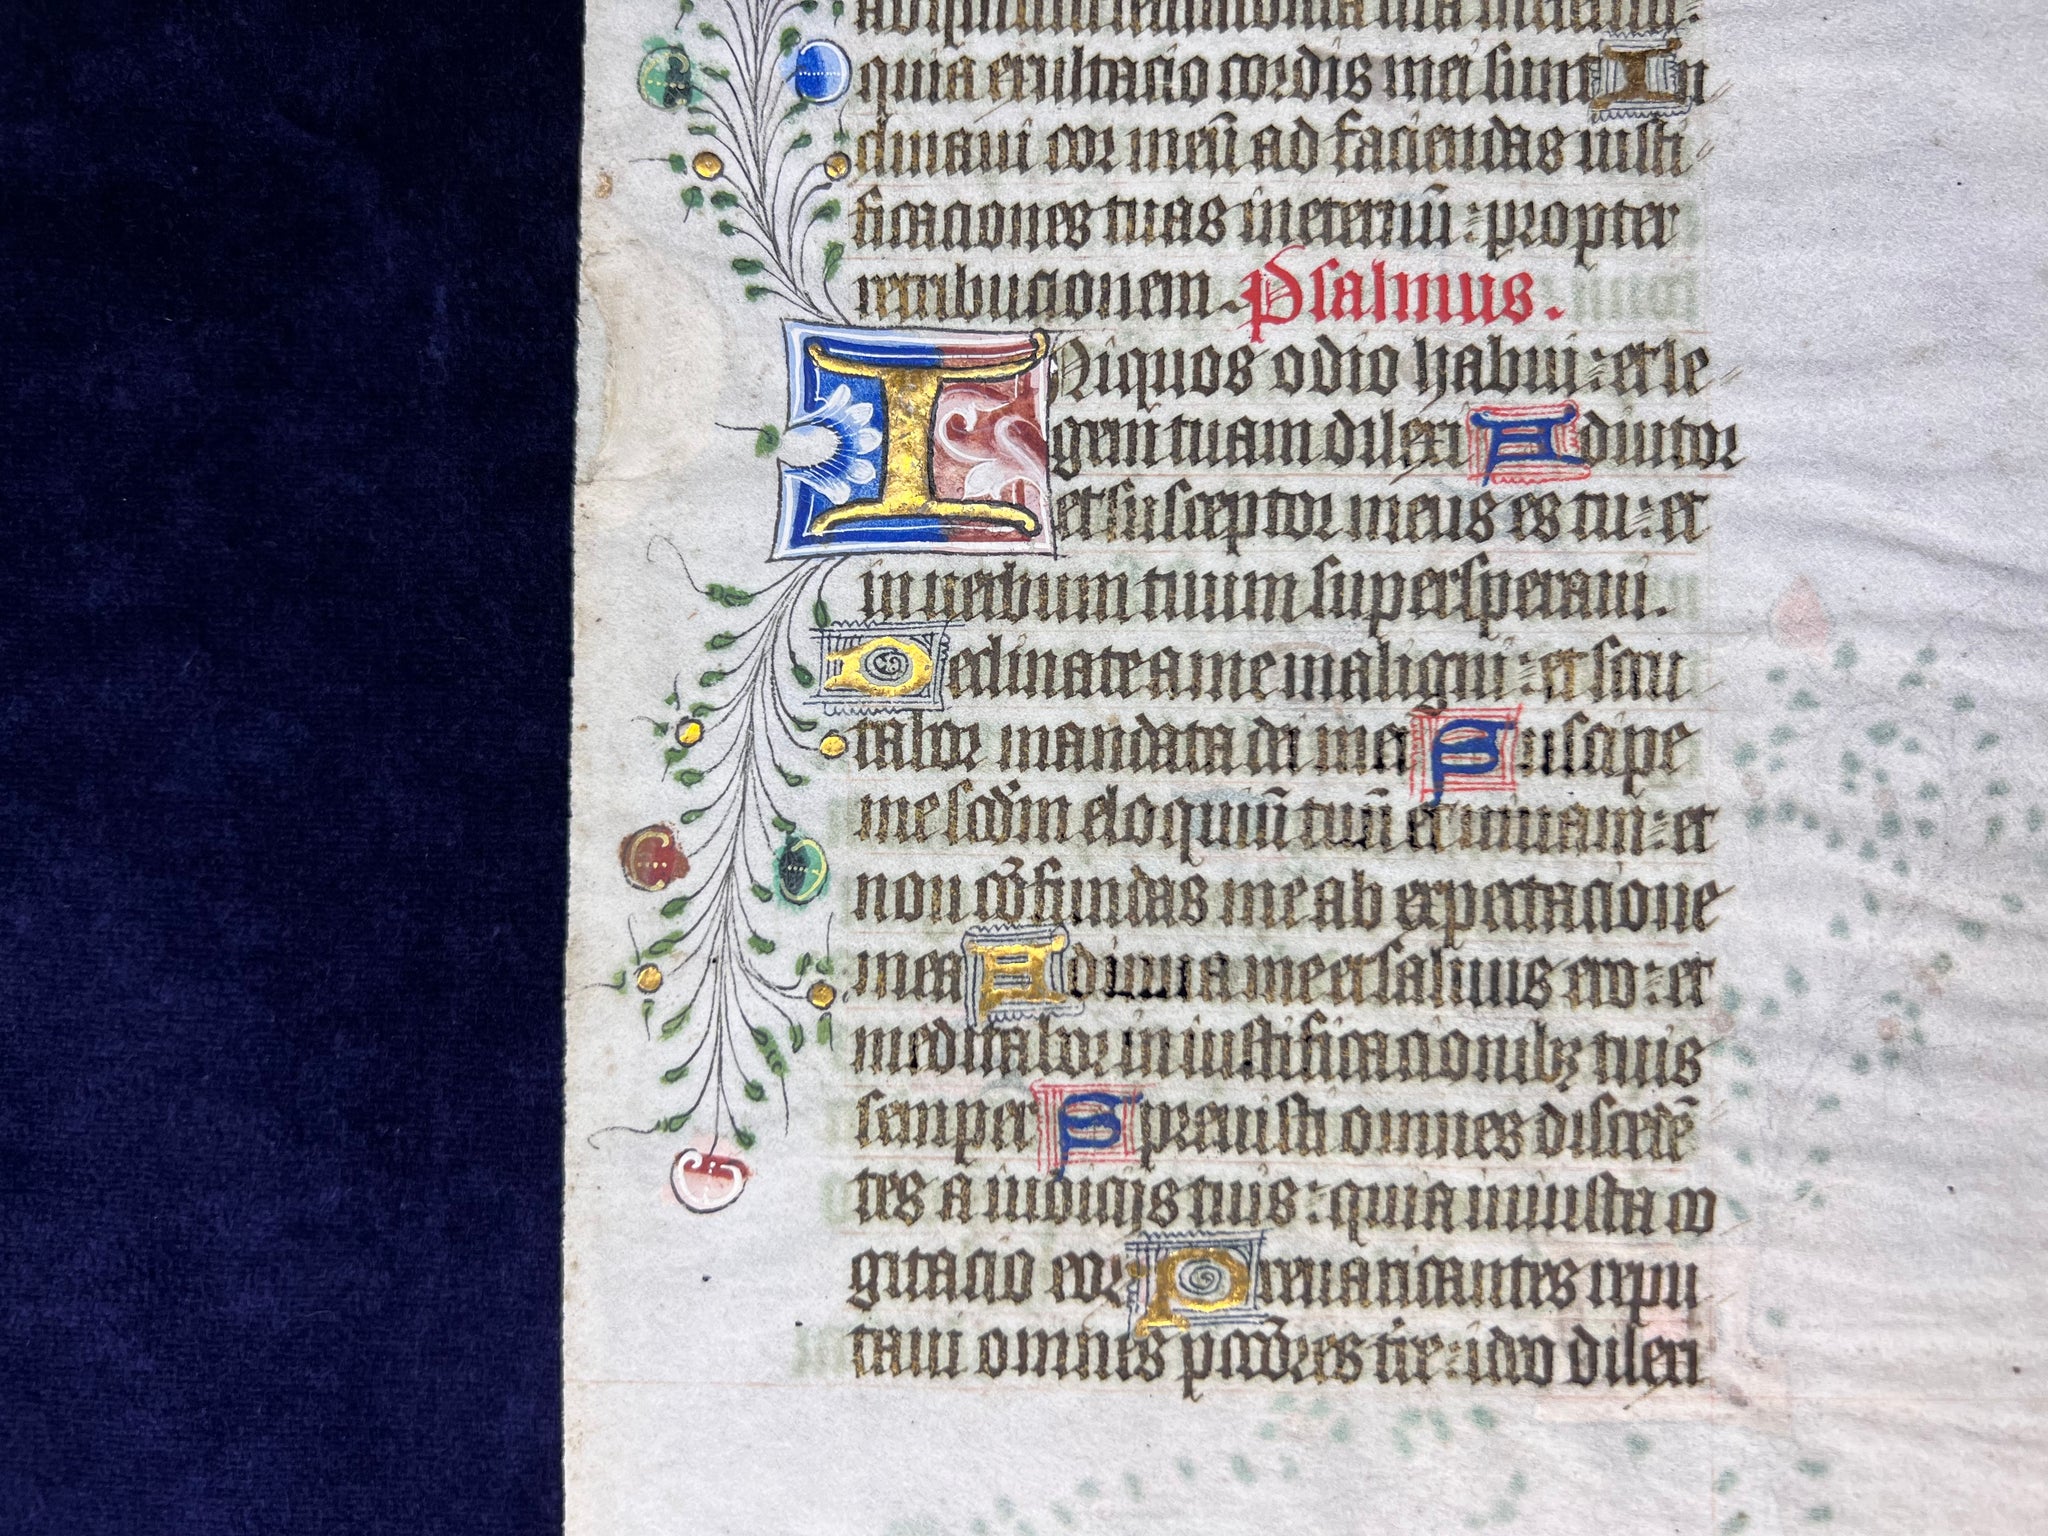 quia exultacio cordis mei sunt In
clinaui cor meū ad faciendas iusti
ficaciones tuas in eternū : propter
retribucionem. Psalmus.
INiquos odio habui : et le
gem̄ tuam dilexi Adiutor
et susceptor meus es tu : et
in uerbum tuum supersperaui.
Declinate a me maligni : et scru
tabor mandata di mei Suscipe
me scd̄m eloquiū tuū et uiuam : et
non cōfundas me ab expectacione
mea Adiuua me et saluus ero : et
meditabor in iustificacionibꝫ tuis
semper Spreuisti omnes discedē
tes a iudicijs tuis : quia iniusta co
gitacio eor Preuaricantes repu
taui omnes pccōres tr̄e : ideo dilexi